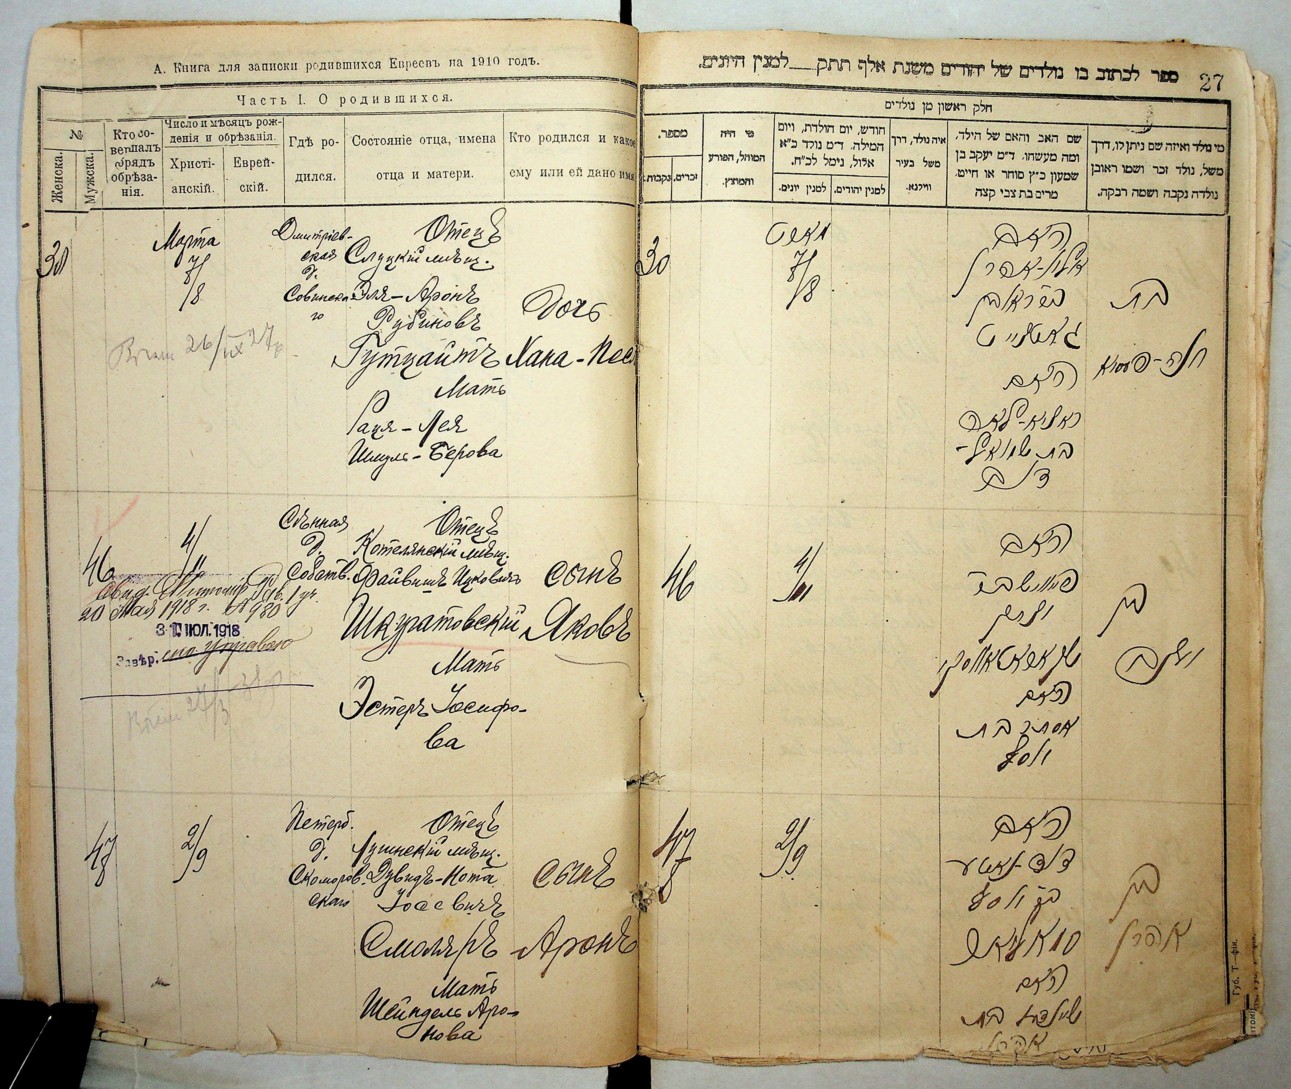 А. Книга для записки родившихся Евреевъ на 1910 годъ.
Часть I. О родившихся.
№
Женска.
Мужска.
Кто со-
вершалъ
обрядъ
обрѣза-
нія.
Число и мѣсяцъ рож-
денія и обрѣзанія.
Христі-
анскій.
Еврей-
скій.
Гдѣ ро-
дился.
Состояніе отца, имена
отца и матери.
Кто родился и какое
ему или ей дано имя
30
Марта
7/8
Дмитріев-
ская
д.
Отецъ
Слуцкій мѣщ.
Эля-Аронъ
Рубиновъ
Гутцайтъ
Мать
Рация-Лея
Шмуль-Берова
Дочь
Хана-Пес
46
4/11
Сѣнная
д.
Собств.
Отецъ
Котелянскій мѣщ.
Файвишъ Ицковичъ
Шкуратовскій
Мать
Эстеръ Іосифо-
ва
сынъ
Яковъ
20 Мая 1918 г. № 980
ИЮЛ. 1918
47
2/9
Петерб.
д.
Скоморов.
Отецъ
мѣщ.
Дувидъ-Нота
Іосевичъ
Смоляръ
Мать
Шейндель Аро-
нова
сынъ
Аронъ
ספר לכתוב בו נולדים של יהודים משנת אלף תתק למנין היונים.
27
חלק ראשון מן נולדים
מספר.
זכרים.
נקבות.
מי היה
המוהל, הפורע
והמוצץ.
חודש, יום הולדת, ויום
המילה. ד״מ נולד כ״א
אלול, נימל לכ״ח.
למנין יהודים.
למנין יונים.
איה נולד, דרך
משל בעיר
ווילנא.
שם האב והאם של הילד,
ומה מעשהו. ד״מ יעקב בן
שמעון כ״ץ סוחר או חייט.
מרים בת צבי קצה
מי נולד ואיזה שם ניתן לו, דרך
משל, נולד זכר ושמו ראובן
נולדה נקבה ושמה רבקה.
30
מארט
7/8
האב
גוטצייט
האם
בת שמואל-
בת
חנה-פעסא
46
4/11
האב
האם
אסתר בת
יוסף
בן
יעקב
47
2/9
האב
דוד נאטע
בן יוסף
סמאליאר
האם
שיינדל בת
אהרן
בן
אהרן